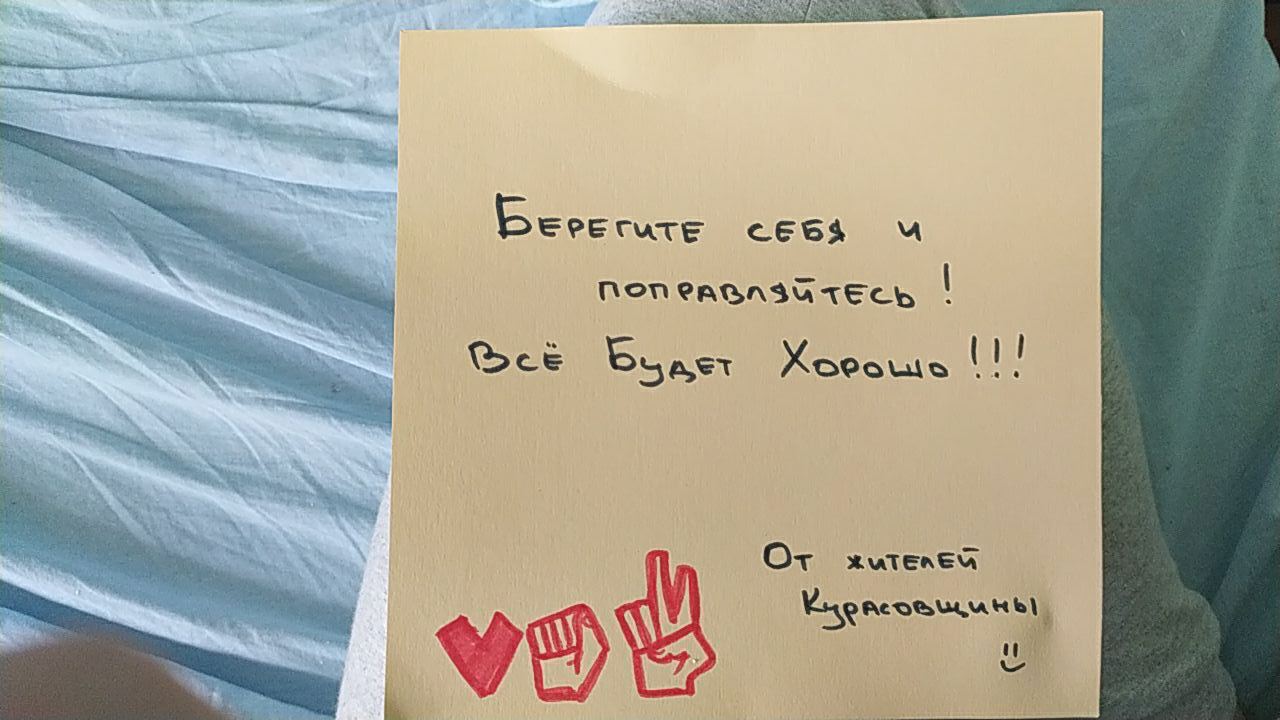 Берегите себя и
поправляйтесь!
Всё Будет Хорошо!!!
От жителей
Курасовщины